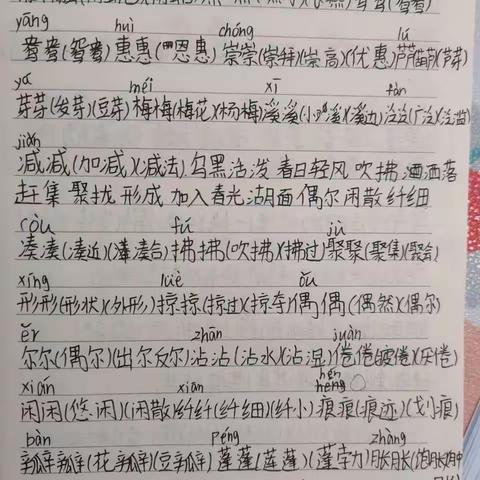 yāng huì chóng lú
鸯鸯(鸳鸯)惠惠(恩惠)崇崇(崇拜)(崇高)(优惠)芦芦(葫芦)(芦芽)
yá méi xī fàn
芽芽(发芽)(豆芽)梅梅(梅花)(杨梅)溪溪(小溪)(溪边)泛泛(广泛)(泛滥)
jiǎn
减减(加减)(减法)乌黑活泼 春日轻风 吹拂 洒落
赶集 聚拢 形成 加入 春光 湖面 偶尔 闲散 纤细
còu fú jù
凑凑(凑近)(凑合)拂拂(吹拂)(拂过)聚聚(聚集)(聚会)
xíng lüè ǒu
形形(形状)(外形)掠掠(掠过)(掠夺)偶偶(偶然)(偶尔)
ěr zhān juàn
尔尔(偶尔)(出尔反尔)沾沾(沾水)(沾湿)倦倦(疲倦)(厌倦)
xián xiān hén
闲闲(悠闲)(闲散)纤纤(纤细)(纤小)痕痕(痕迹)(划痕)
bàn péng zhàng
瓣瓣(花瓣)(豆瓣)蓬蓬(莲蓬)(蓬勃)胀胀(饱胀)